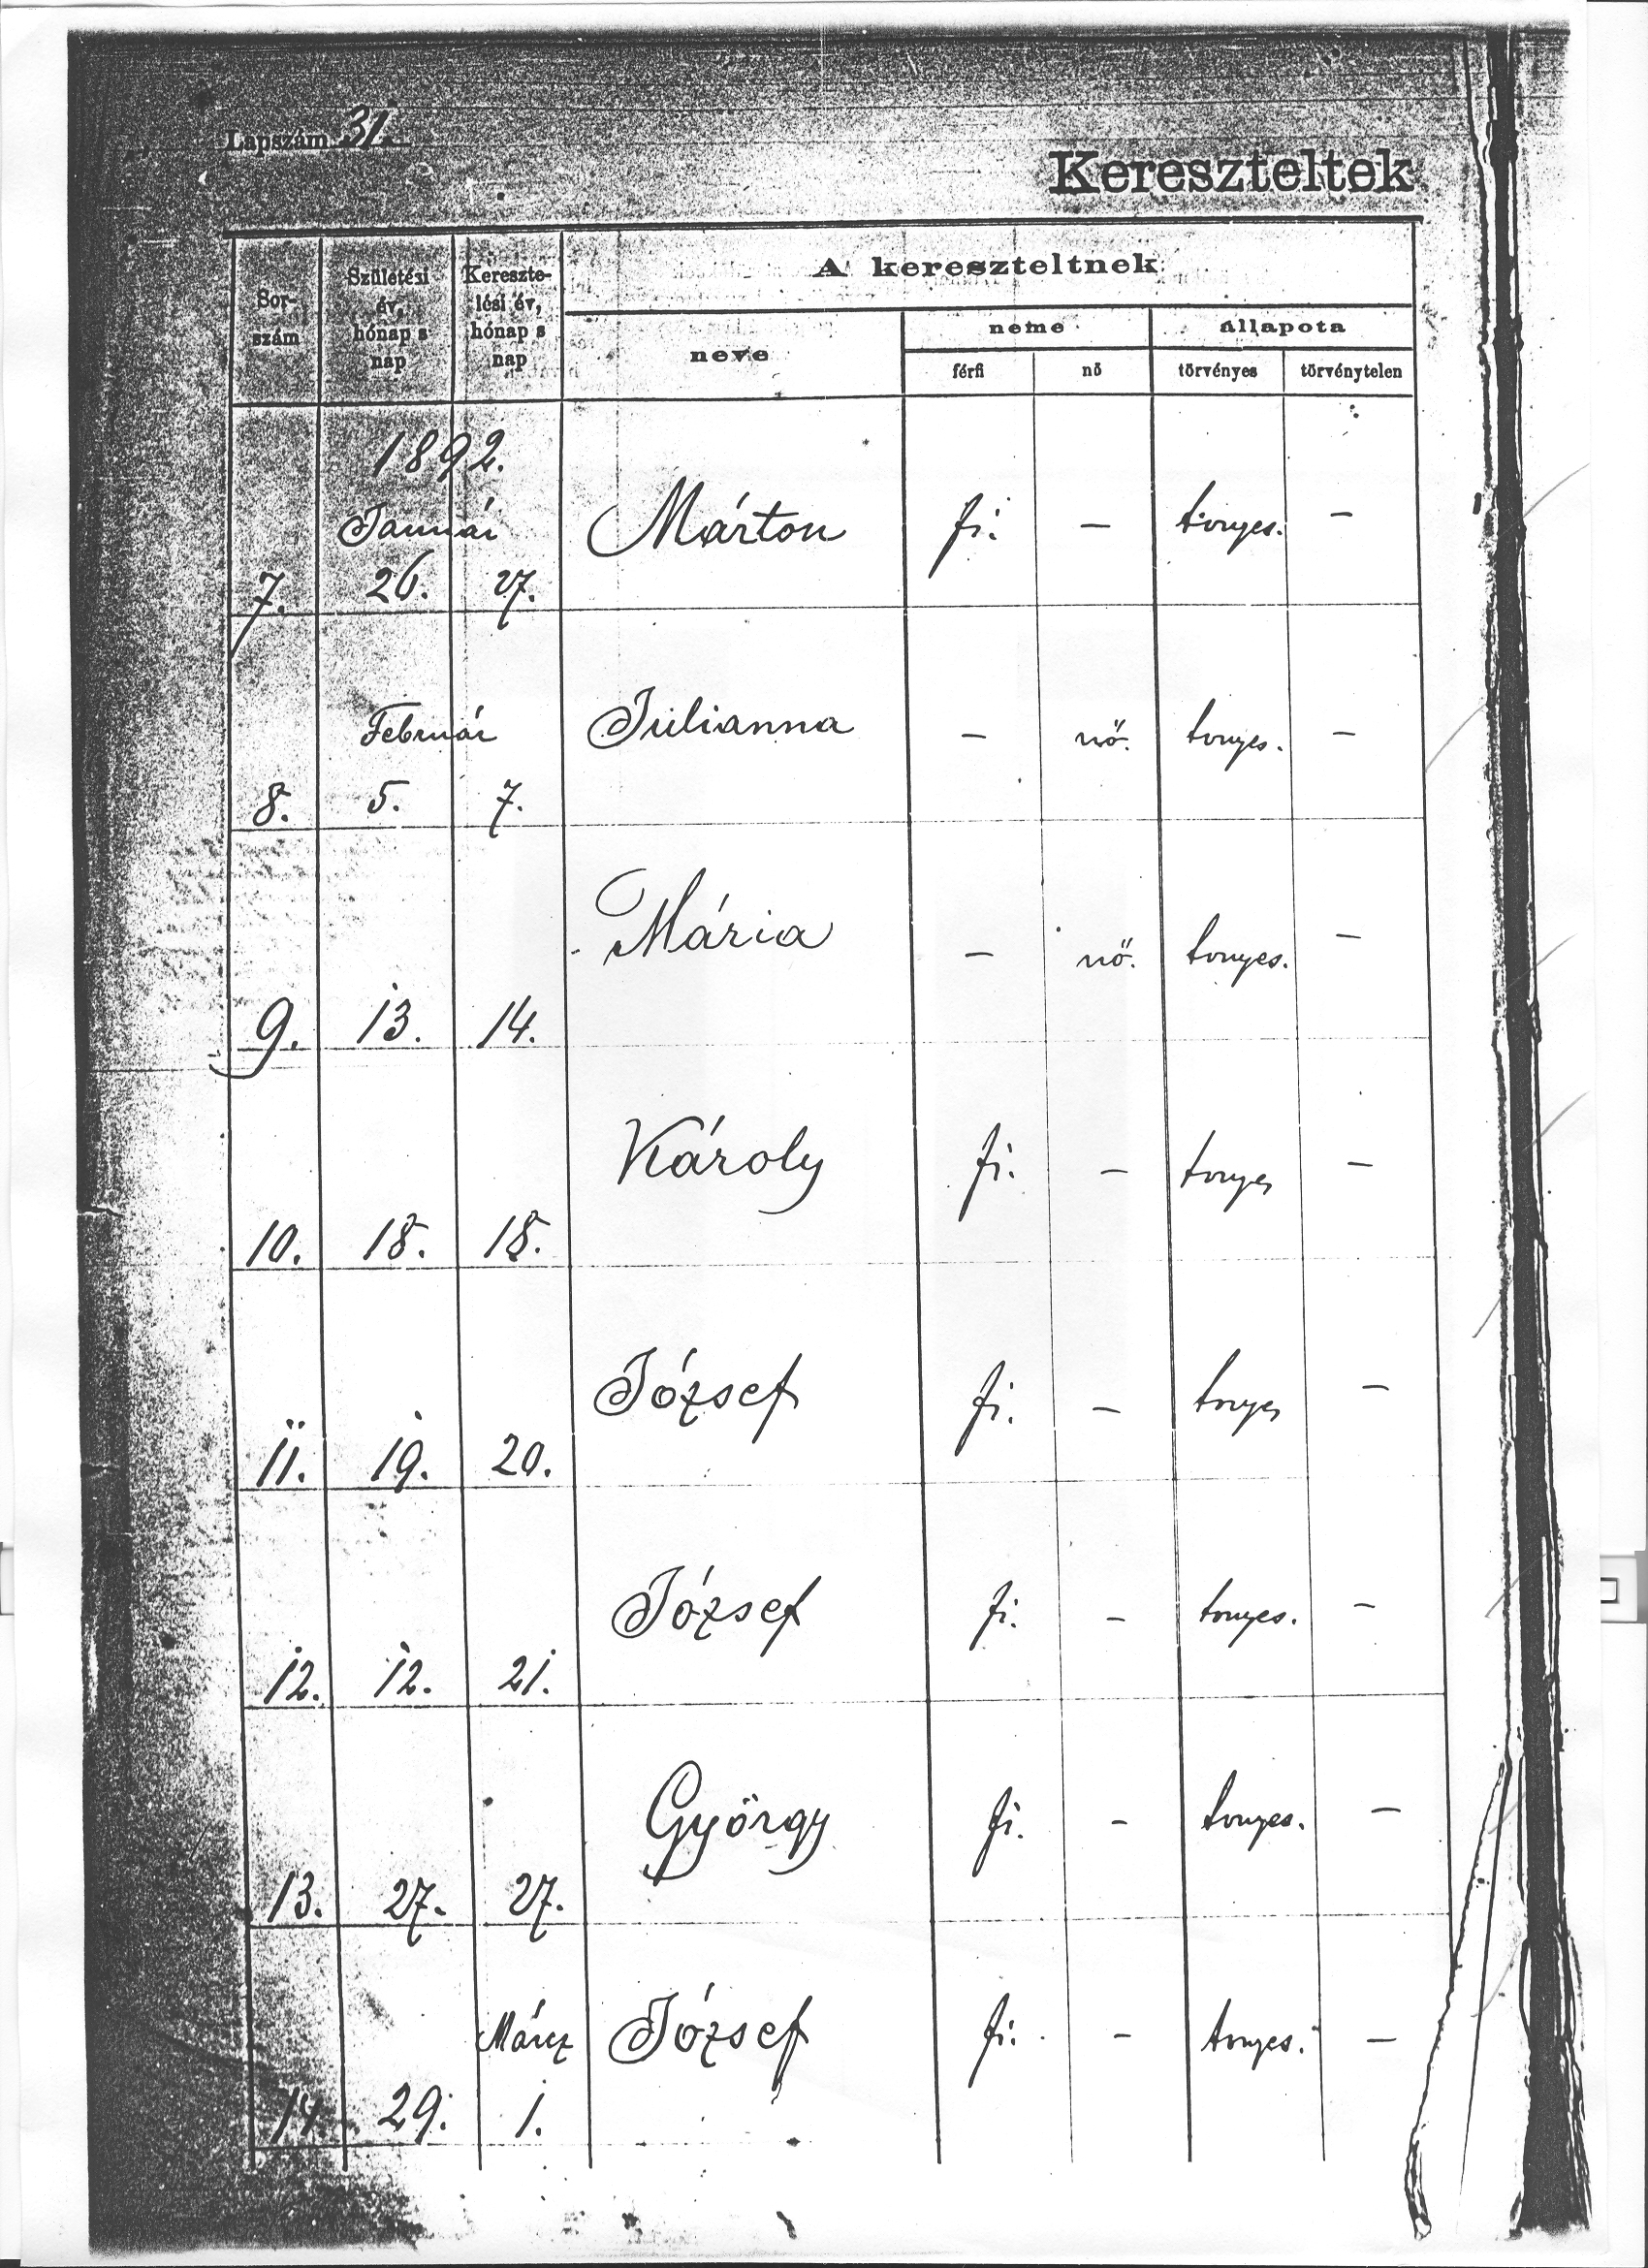 Lapszám 31.
Kereszteltek
Sor-
szám
Születési
év,
hónap s
nap
Kereszte-
lési év,
hónap s
nap
A kereszteltnek
neve
neme
állapota
férfi
nő
törvényes
törvénytelen
1892.
Január
7. 26. 27. Márton fi. – tvnyes. –
Február
8. 5. 7. Julianna – nő. tvnyes. –
9. 13. 14. Mária – nő. tvnyes. –
10. 18. 18. Károly fi. – tvnyes –
11. 19. 20. József fi. – tvnyes –
12. 12. 21. József fi. – tvnyes. –
13. 27. 27. György fi. – tvnyes. –
Márcz
14. 29. 1. József fi. – tvnyes. –